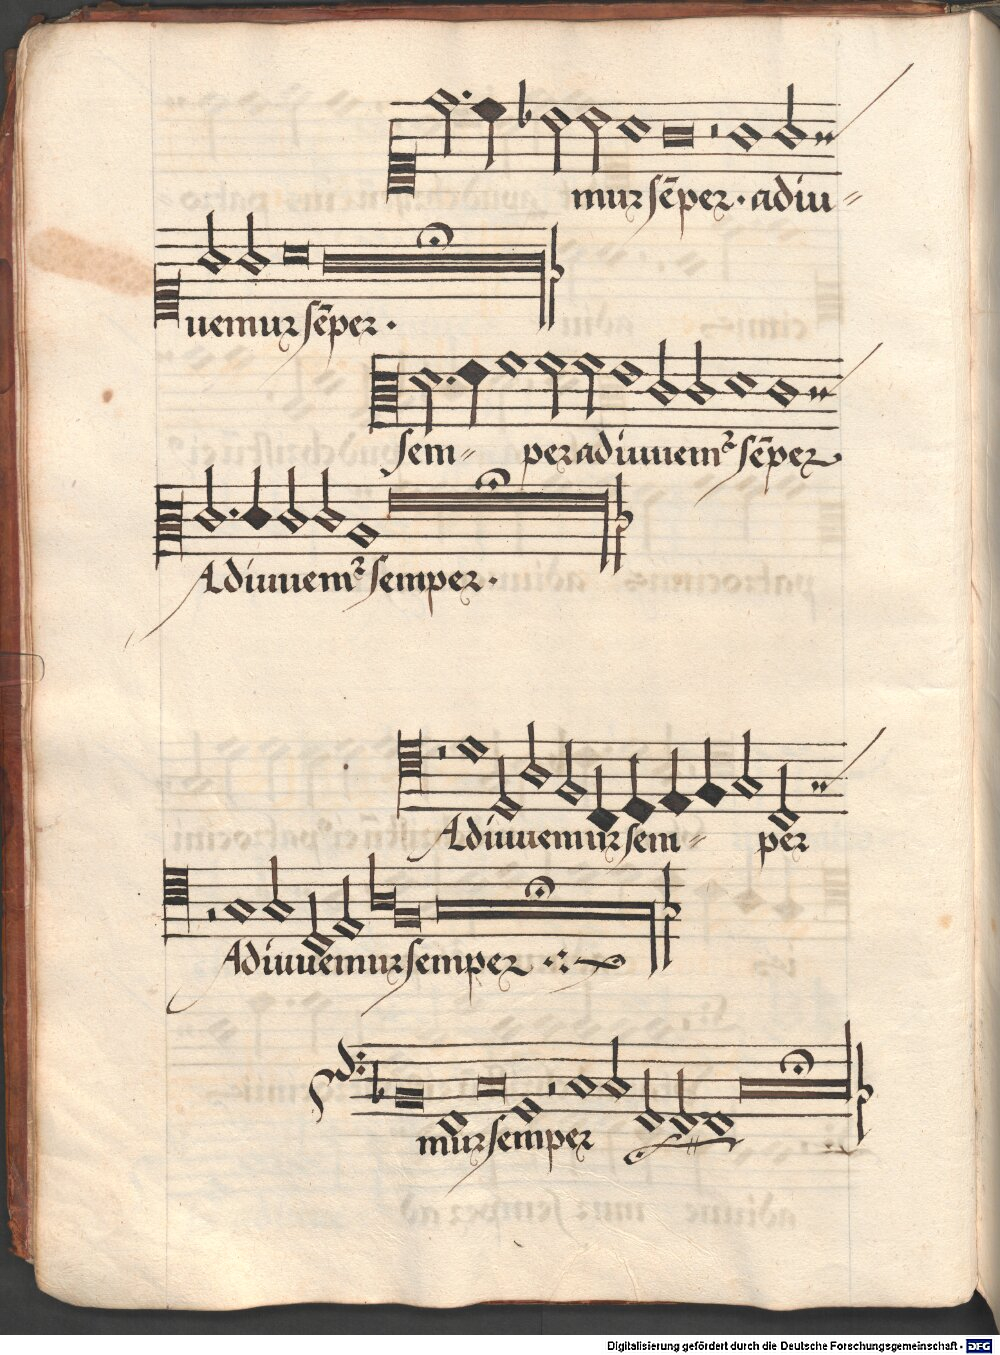 mur sēper · adiu⸗
uemur sēper ·
sem⸗ per adiuuemꝰ sēper
Adiuuemꝰ semper ·
Adiuuemur sem⸗ per
Adiuuemur semper ·:~
mur semper
Digitalisierung gefördert durch die Deutsche Forschungsgemeinschaft - DFG